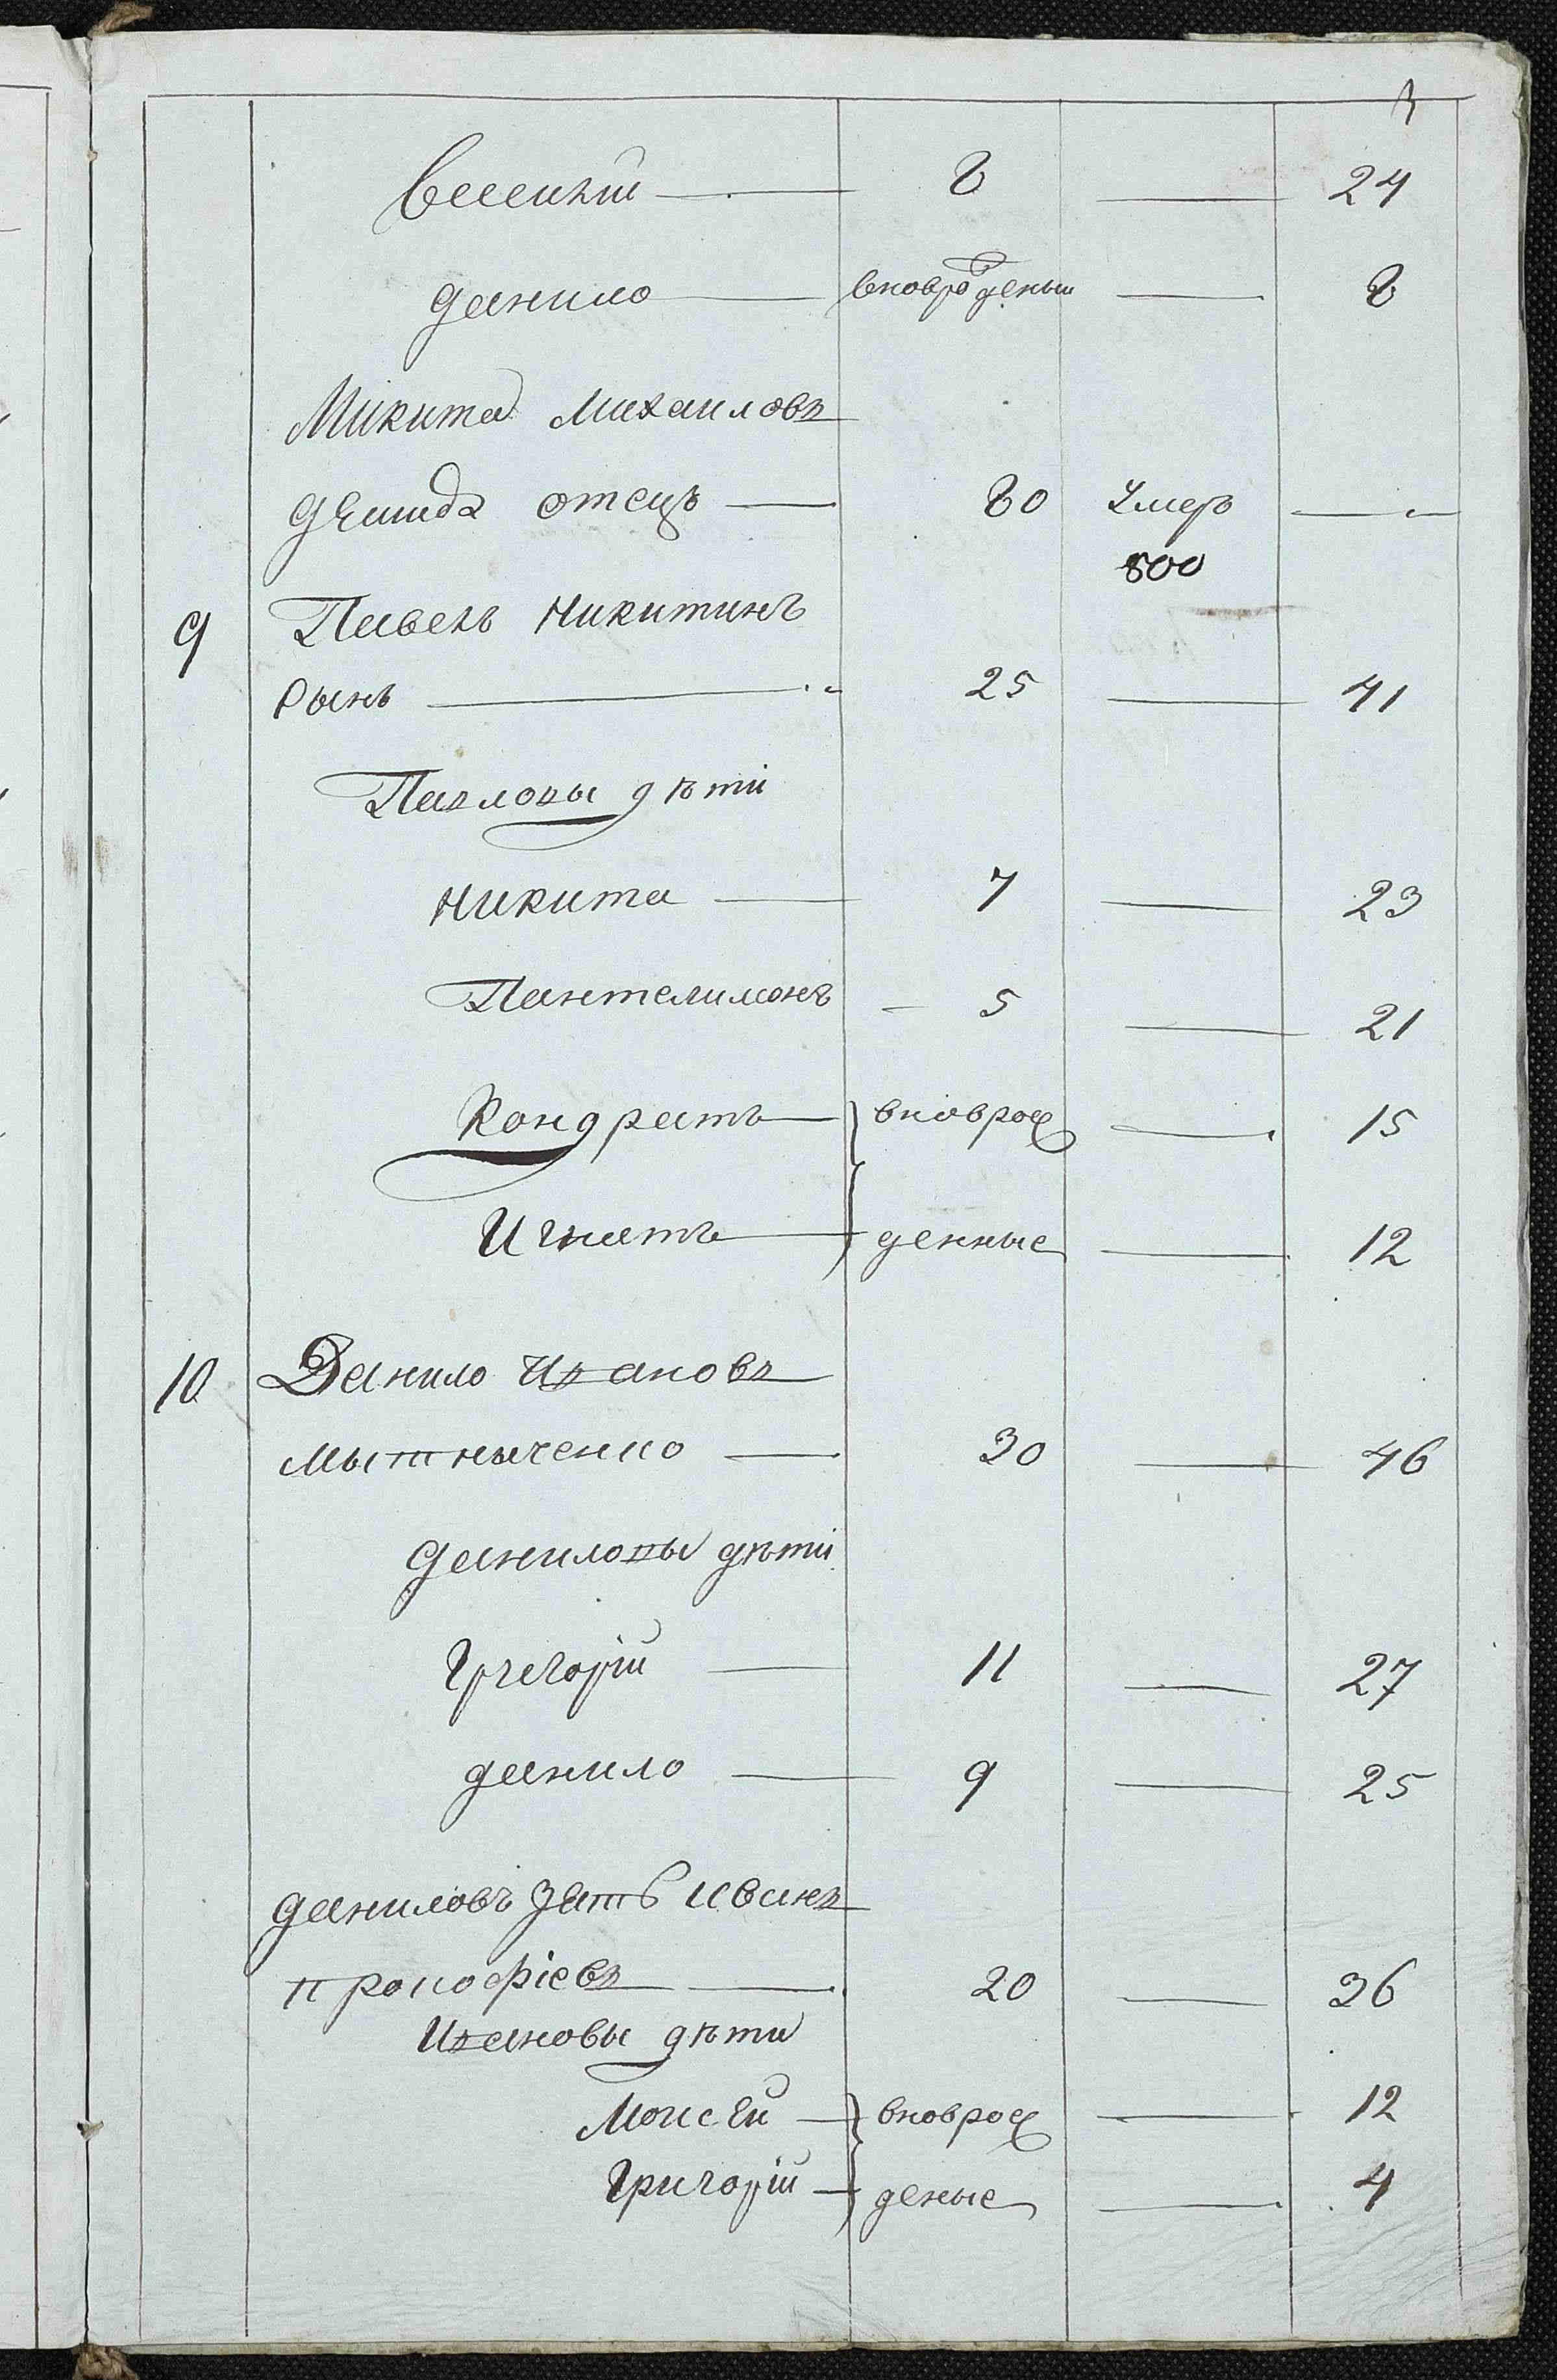 3
Евсений — 8 — 24
данило — вноврожденыи — 8
Микита Михаиловъ
отецъ — 80 умеръ —
800
9 Павелъ Никитинъ
сынъ — 25 — 41
Павловы дѣти
Никита — 7 — 23
Пантелимонъ — 5 — 21
Кондратъ — вноврож — 15
Игнатъ — денные — 12
10 Данило Ивановъ
мытныченко — 30 — 46
даниловы дѣти
Григорій — 11 — 27
данило — 9 — 25
даниловъ зять иванъ
прокофіевъ — 20 — 36
Ивановы дѣти
Моисей — вноврож — 12
Григорій — деные — 4